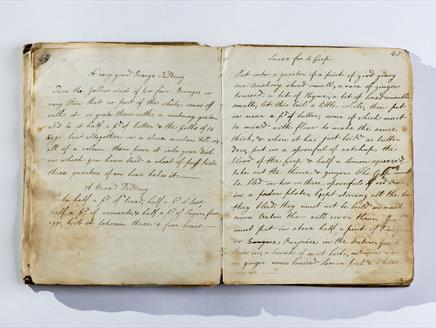 44
A very good Orange Pudding
Take the yellow rinds of two fair Oranges so
very thin that no part of the white comes off
with it, so grate them with a nutmeg grater
add to it half a pd of butter & the yolks of 16
eggs, beat altogether in a stone mortar till tis
all of a colour, then pour it into your dish
in which you have laid a sheet of puff paste
three quarters of an hour bakes it
A bread Pudding
Take half a pd of bread, half a pd of suet
half a pd of currants, & half a pd of sugar, four
eggs, boil it between three & four hours
45
Sauce for a Carp
Put into a quarter of a pint of good gravy
one Anchovy shred small, a race of ginger
bruised, a bit of thyme, a bit of
small, let this boil a little while, then put
in near a pd of butter, some of which must
be mix'd with flour to make the sauce
thick, & when it has just boil'd
put in a spoonful of catchup, the
blood of the Carp & half a lemon squeezed
take out the thyme & ginger The Carp must
be bled in two or three spoonfuls of red wine
in a pewter plate, kept stirring all the time
they bleed; they must not be boild in much
more Water than will cover them. You
must put in above half a pint of Vinegar
or in the water for
a bunch of sweet herbs,
or ginger some bruised lemon peel &